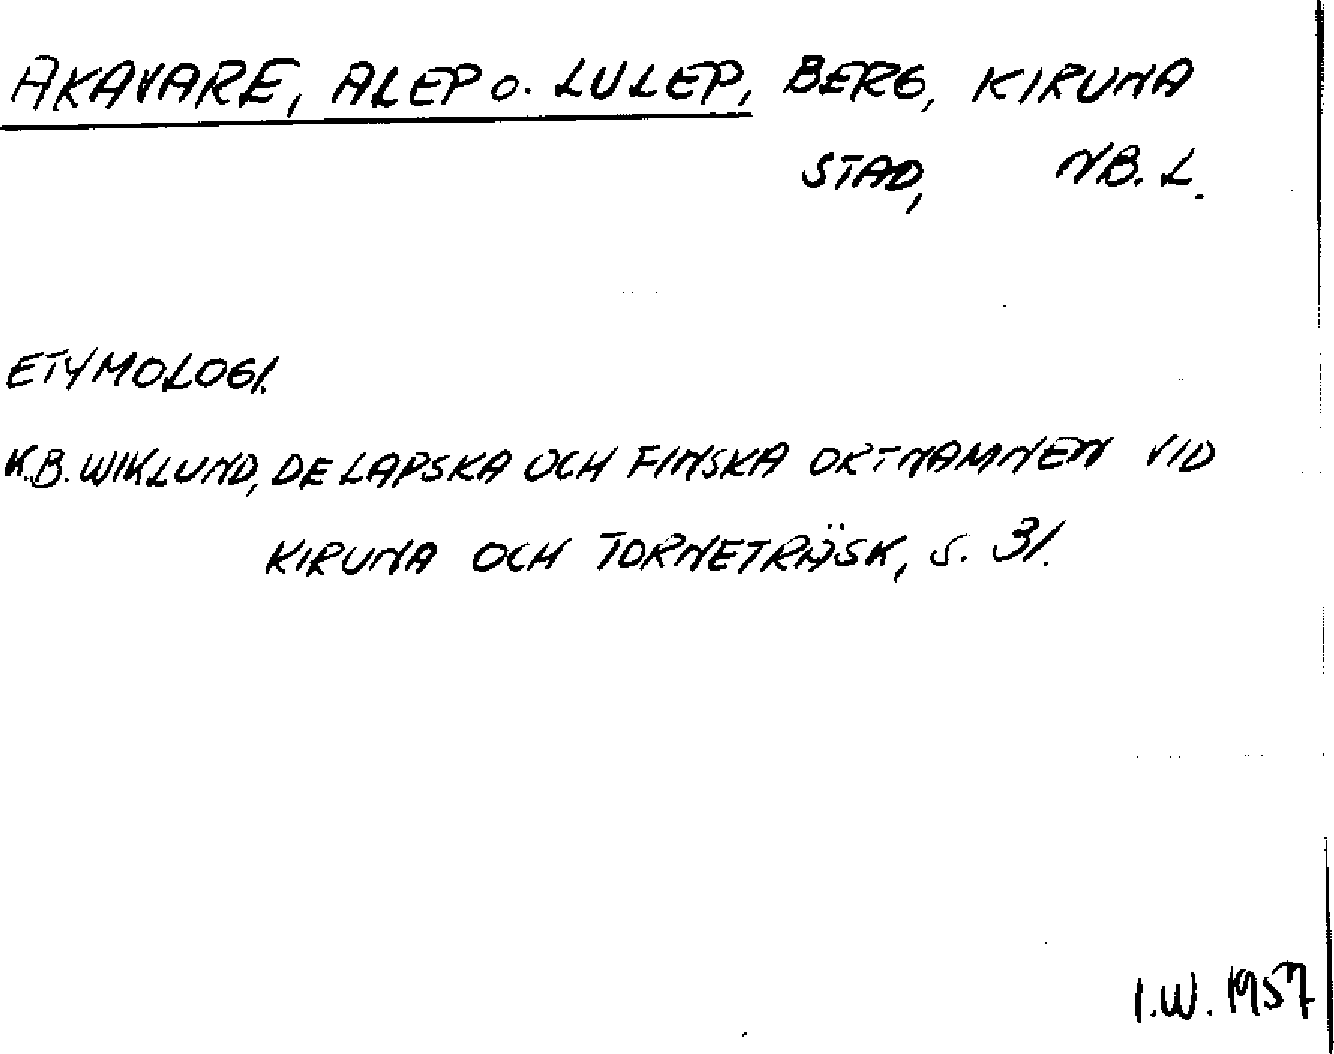 AKAVARE, ALEP o. LULEP, BERG, KIRUNA
STAD, NB. L.
ETYMOLOGI.
K.B. WIKLUND, DE LAPSKA OCH FINSKA ORTNAMNEN VID
KIRUNA OCH TORNETRÄSK, S. 31.
I.W. 1957